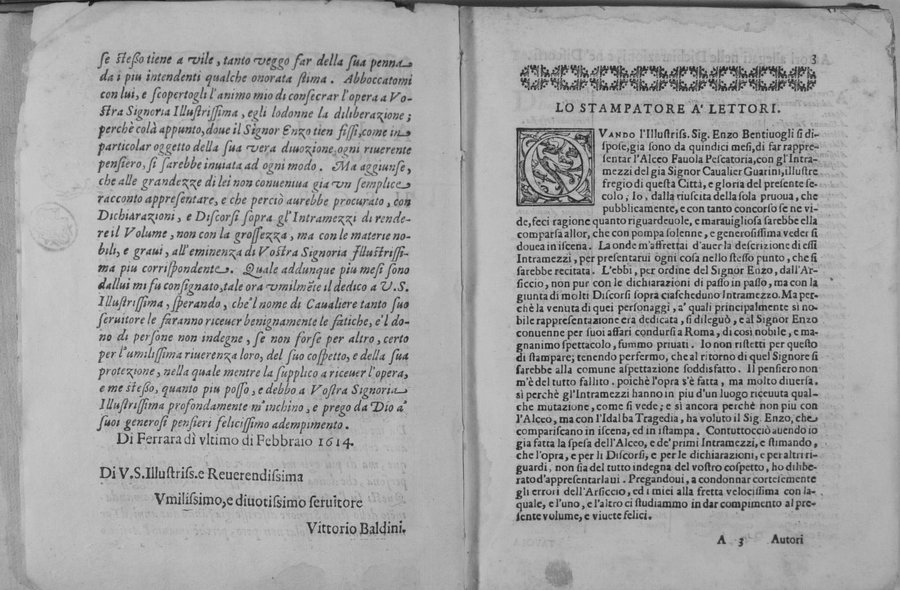 se steßo tiene a vile, tanto veggo far della sua penna
da i piu intendenti qualche onorata stima. Abboccatomi
con lui, e scopertogli l'animo mio di consecrar l'opera a Vo-
stra Signoria Illustrissima, egli lodonne la diliberazione;
perchè colà appunto, doue il Signor Enzo tien fissi, come in
particolar oggetto della sua vera diuozione, ogni riuerente
pensiero, si sarebbe inuiata ad ogni modo. Ma aggiunse,
che alle grandezze di lei non conueniua gia un semplice
racconto appresentare, e che perciò aurebbe procurato, con
Dichiarazioni, e Discorsi sopra gl'Intramezzi di rende-
re il Volume, non con la grossezza, ma con le materie no-
bili, e graui, all'eminenza di Vostra Signoria Illustrissi-
ma piu corrispondente. Quale addunque piu mesi sono
dallui mi fu consignato, tale ora vmilmẽte il dedico a V.S.
Illustrissima, sperando, che'l nome di Caualiere tanto suo
seruitore le faranno riceuer benignamente le fatiche, e'l do-
no di persone non indegne, se non forse per altro, certo
per l'umilissima riuerenza loro, del suo cospetto, e della sua
protezione, nella quale mentre la supplico a riceuer l'opera,
e me steßo, quanto piu posso, e debbo a Vostra Signoria
Illustrissima profondamente m'inchino, e prego da Dio a'
suoi generosi pensieri felicissimo adempimento.
Di Ferrara dì vltimo di Febbraio 1614.
Di V.S. Illustriss. e Reuerendissima
Vmilissimo, e diuotissimo seruitore
Vittorio Baldini.
3
LO STAMPATORE A' LETTORI.
QVANDO l'Illustriss. Sig. Enzo Bentiuogli si di-
spose, gia sono da quindici mesi, di far rappre-
sentar l'Alceo Fauola Pescatoria, con gl'Intra-
mezzi del gia Signor Caualier Guarini, illustre
fregio di questa Città, e gloria del presente se-
colo, Io, dalla riuscita della sola pruoua, che
pubblicamente, e con tanto concorso se ne vi-
de, feci ragione quanto riguardeuole, e marauigliosa sarebbe ella
comparsa allor, che con pompa solenne, e generosissima veder si
douea in iscena. La onde m'affrettai d'auer la descrizione di essi
Intramezzi, per presentarui ogni cosa nello stesso punto, che si
sarebbe recitata. L'ebbi, per ordine del Signor Enzo, dall'Ar-
siccio, non pur con le dichiarazioni di passo in passo, ma con la
giunta di molti Discorsi sopra ciascheduno Intramezzo. Ma per-
chè la venuta di quei personaggi, a' quali principalmente sì no-
bile rappresentazione era dedicata, si dileguò, e al Signor Enzo
conuenne per suoi affari condursi a Roma, di così nobile, e ma-
gnanimo spettacolo, fummo priuati. Io non ristetti per questo
di stampare; tenendo per fermo, che al ritorno di quel Signore si
sarebbe alla comune aspettazione soddisfatto. Il pensiero non
m'è del tutto fallito. poichè l'opra s'è fatta, ma molto diuersa.
sì perchè gl'Intramezzi hanno in piu d'un luogo riceuuta qual-
che mutazione, come si vede; e sì ancora perchè non piu con
l'Alceo, ma con l'Idalba Tragedia, ha voluto il Sig. Enzo, che
compariscano in iscena, ed in istampa. Contuttociò auendo io
gia fatta la spesa dell'Alceo, e de' primi Intramezzi, e stimando,
che l'opra, e per li Discorsi, e per le dichiarazioni, e per altri ri-
guardi, non sia del tutto indegna del vostro cospetto, ho dilibe-
rato d'appresentarlaui. Pregandoui, a condonnar cortesemente
gli errori dell'Arsiccio, ed i miei alla fretta velocissima con la-
quale, e l'uno, e l'altro ci studiammo in dar compimento al pre-
sente volume, e viuete felici.
A 3 Autori